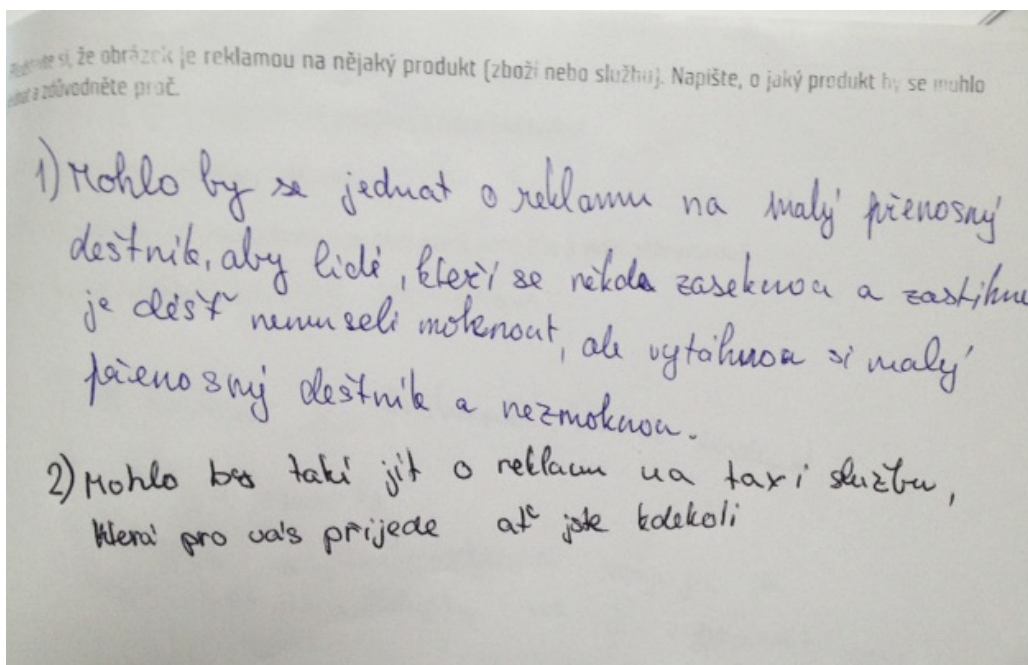 si, že obrázek je reklamou na nějaký produkt (zboží nebo službu). Napište, o jaký produkt by se mohlo
a zdůvodněte proč.
1) Mohlo by se jednat o reklamu na malý přenosný
deštník, aby lidé, kteří se někde zaseknou a zastihne
je déšť nemuseli moknout, ale vytáhnou si malý
přenosný deštník a nezmoknou.
2) Mohlo by takí jít o reklamu na taxi službu,
která pro vás přijede ať jste kdekoli